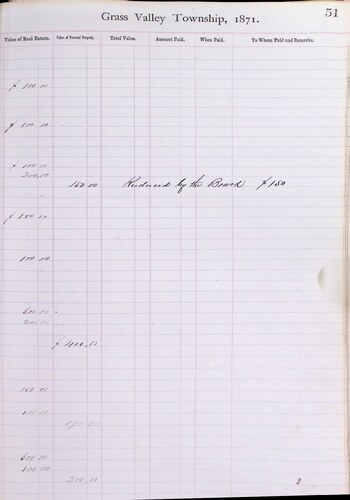 Grass Valley Township, 1871.
51
Value of Real Estate. Value of Personal Property. Total Value. Amount Paid. When Paid. To Whom Paid and Remarks.
100.00
100.00
100.00
200.00
150.00 Reduced by the Board $150
100.00
100.00
500.00
200.00
400.00
100.00
100.00
600.00
100.00
200.00